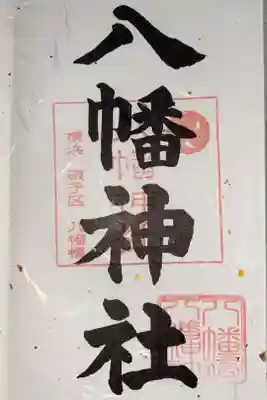 八幡神社
横浜 磯子区 八幡橋
八幡